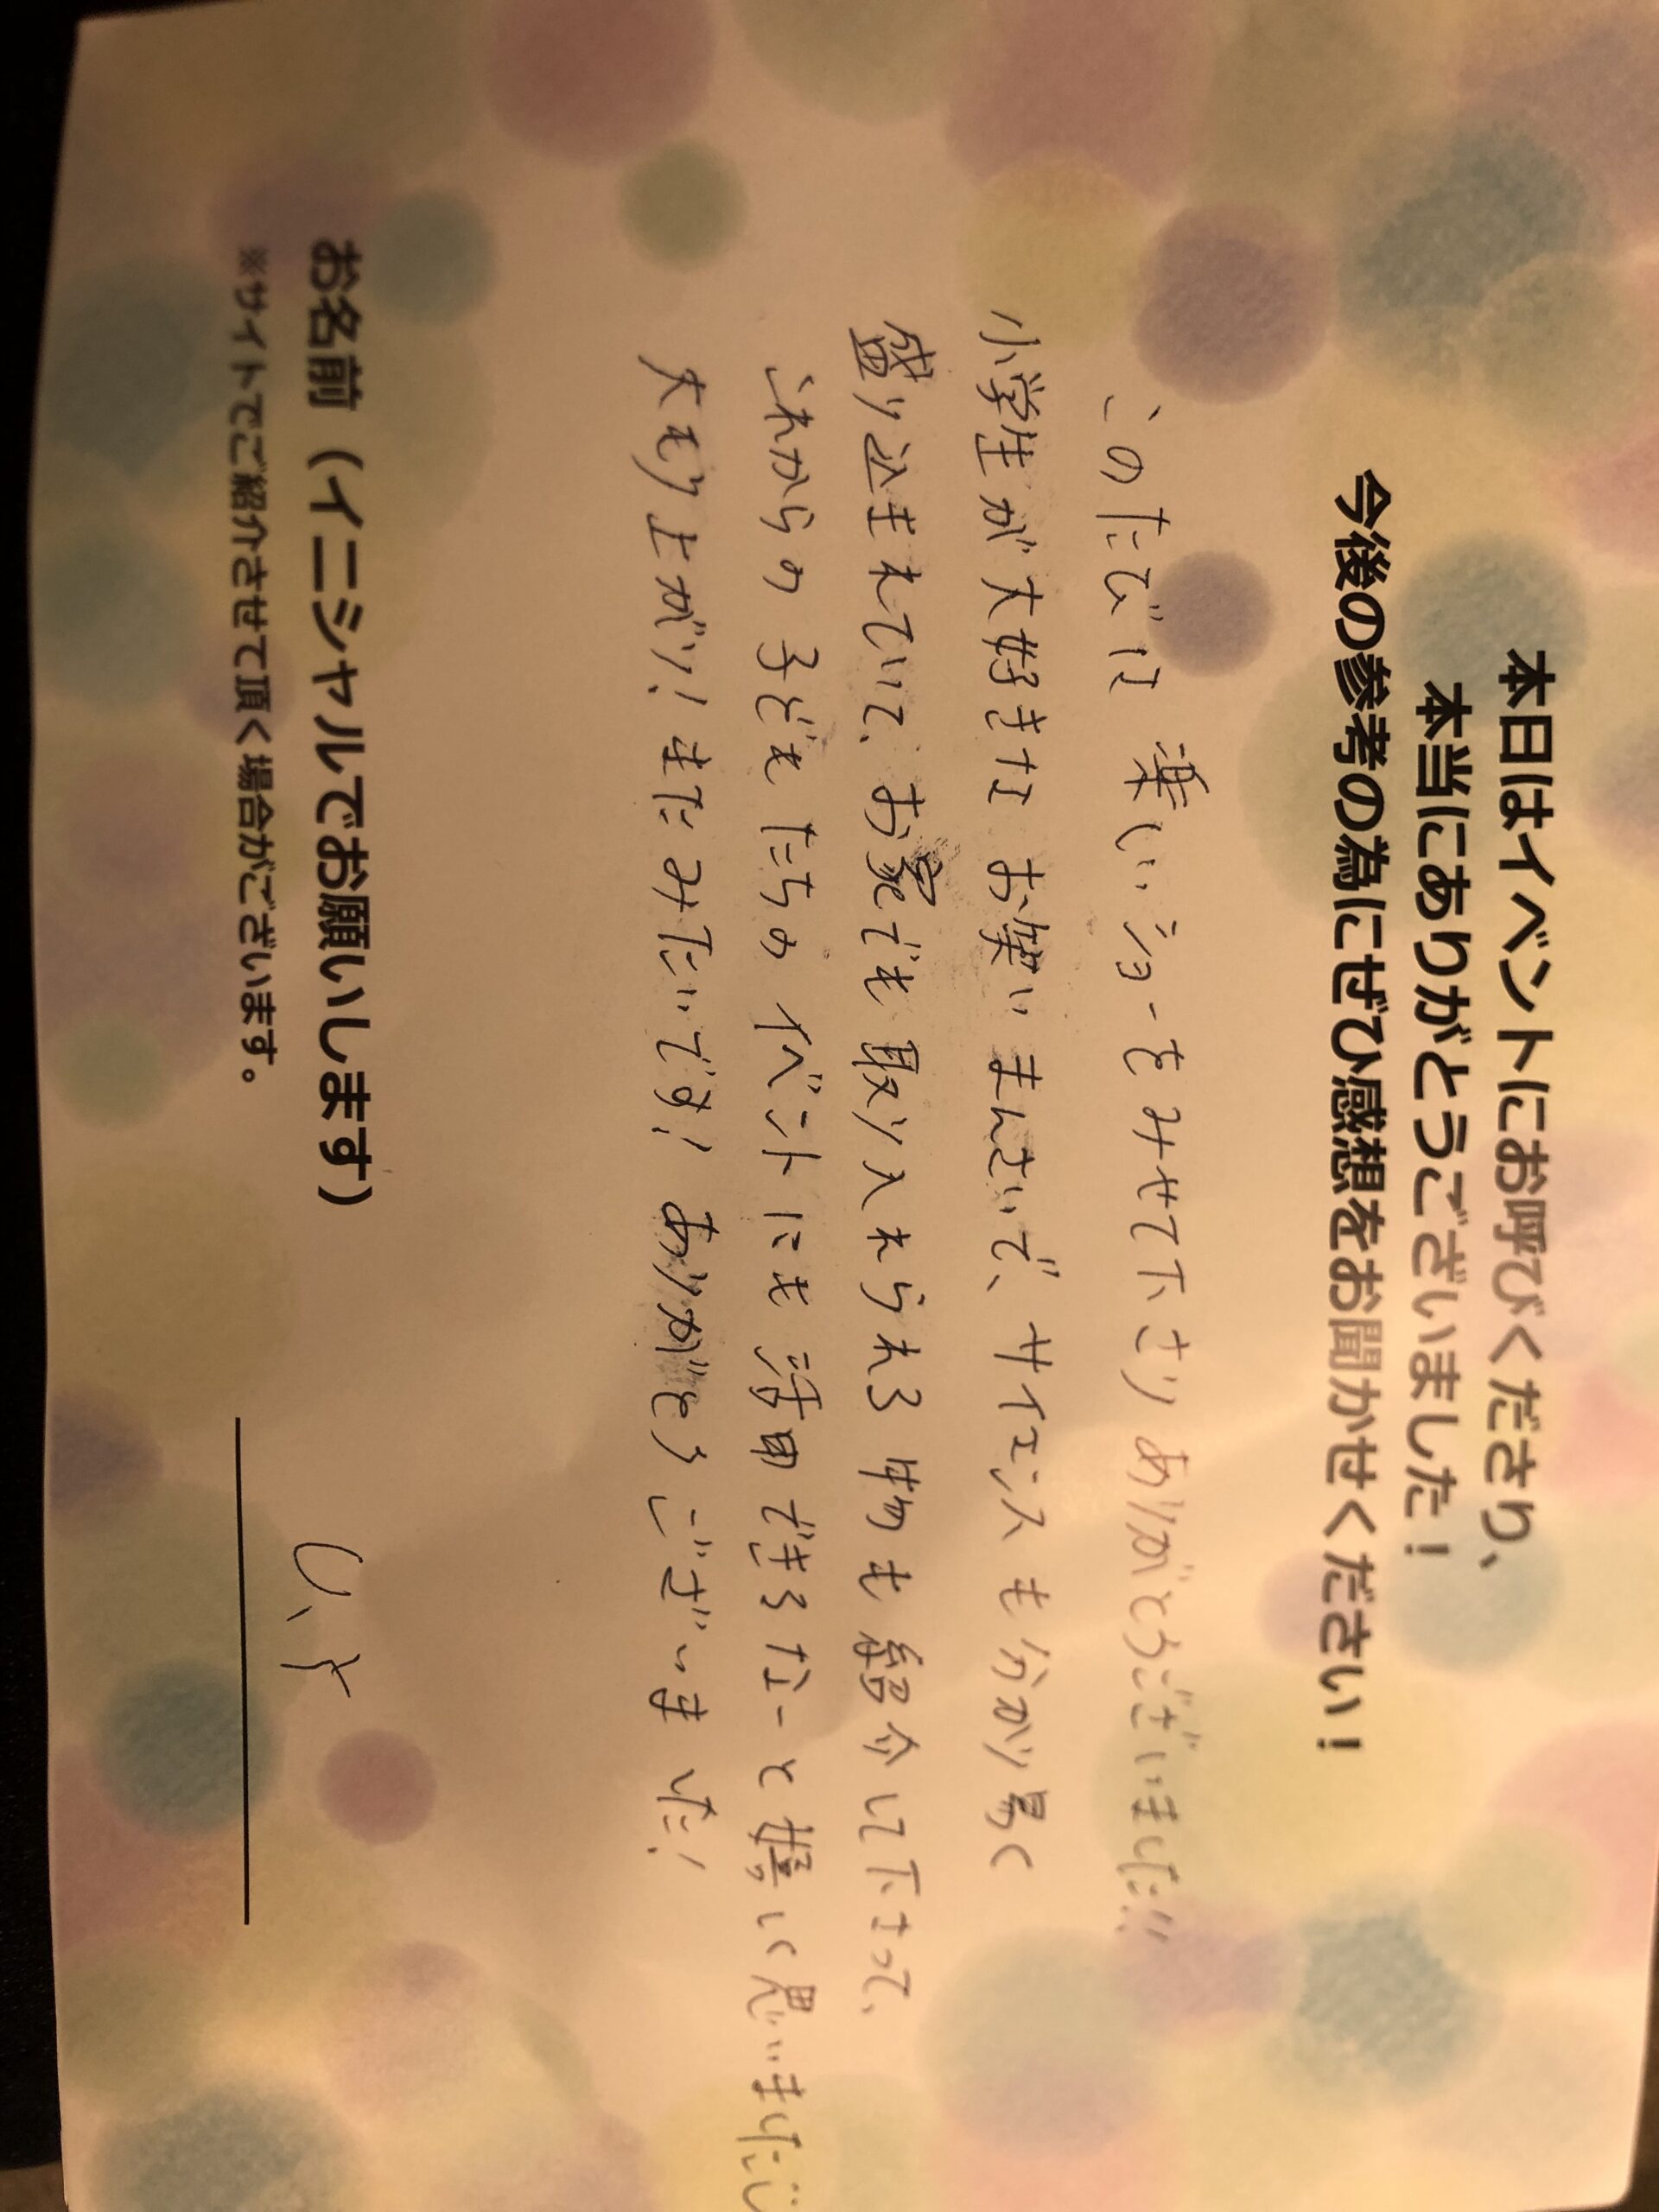 本日はイベントにお呼びくださり、
本当にありがとうございました！
今後の参考の為にぜひ感想をお聞かせください！
このたびは 楽しいショーをみせて下さり ありがとうございました!!
小学生が大好きな お笑い まんさいで、サイエンスも分かり易く
盛り込まれていて、お家でも取り入れられる物も紹介して下さって、
これからの 子どもたちの イベントにも 活用できるなーと 嬉しく思いました
大もり上がり！またみたいです！ありがとうございました！
お名前（イニシャルでお願いします）
※サイトでご紹介させて頂く場合がございます。